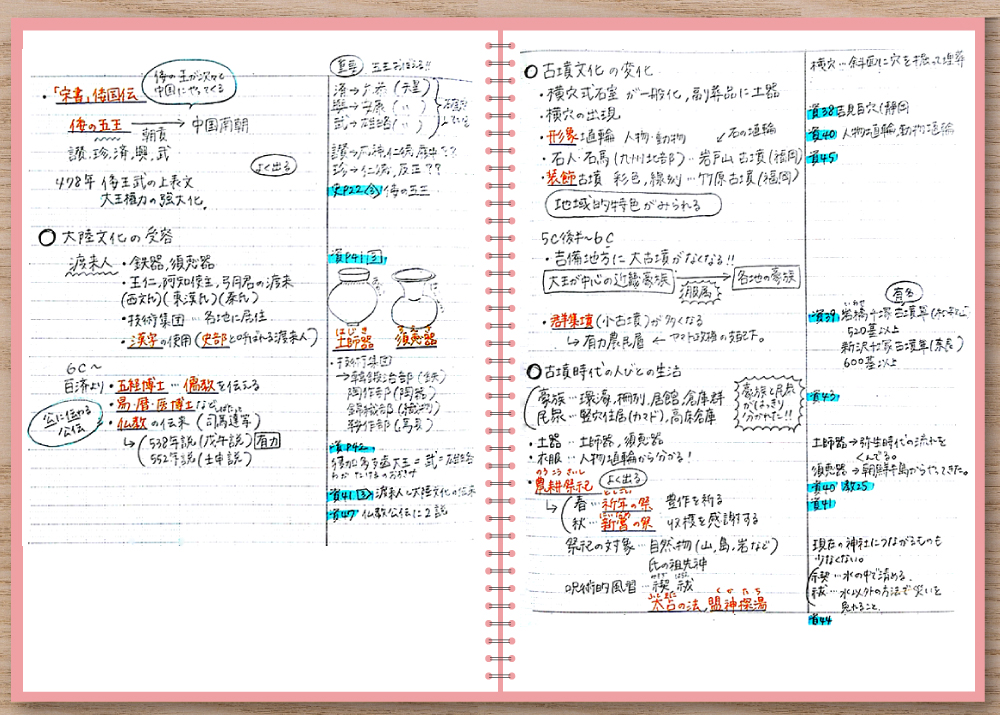 倭の王が次々と
中国にやってくる
・「宋書」倭国伝
倭の五王 → 中国南朝
朝貢
讃、珍、済、興、武
よく出る
478年 倭王武の上表文
大王権力の強大化。
大陸文化の受容
渡来人 ・鉄器、須恵器
・王仁、阿知使主、弓月君の渡来
(西文氏)(東漢氏)(秦氏)
・技術集団…各地に居住
・漢字の使用(史部と呼ばれる渡来人)
6C〜
百済より・五経博士…儒教を伝える
・易・暦・医博士など
公に伝わる
公伝
・仏教の伝来(司馬達等)
538年説(戊午説)有力
552年説(壬申説)
重要
済→允恭(天皇)
興→安康(〃)
武→雄略(〃)
讃→応神、仁徳、履中??
珍→仁徳、反正??
史P22(会)倭の五王
資P41 
はじき
土師器
すえき
須恵器
・技術集団
→韓鍛冶部(鉄)
陶作部(陶器)
錦織部(織物)
鞍作部(馬具)
資P42
獲加多支鹵大王=武=雄略
資41 渡来人と大陸文化の伝来
資47 仏教公伝に2説
古墳文化の変化
・横穴式石室が一般化、副葬品に土器
・横穴の出現
・形象埴輪 人物・動物
石の埴輪
・石人・石馬(九州北部)…岩戸山古墳(福岡)
・装飾古墳 彩色、線刻…竹原古墳(福岡)
地域的特色がみられる
5C後半〜6C
・吉備地方に大古墳がなくなる!!
大王が中心の近畿豪族 → 各地の豪族
服属
・群集墳(小古墳)が多くなる
有力農民層 ← ヤマト政権の支配下。
古墳時代の人びとの生活
豪族…環濠、柵列、居館、倉庫群
民衆…竪穴住居(カマド)、高床倉庫
豪族と民衆
がはっきり
分かれた!!
・土器…土師器、須恵器
・衣服…人物埴輪から分かる!
のうこうさいし
・農耕祭祀 よく出る
としごい
春…祈年の祭 豊作を祈る
秋…新嘗の祭 収穫を感謝する
祭祀の対象…自然物(山、島、岩など)
氏の祖先神
呪術的風習…禊 祓
ふとまに くかたち
太占の法、盟神探湯
横穴…斜面に穴を掘って埋葬
資38 吉見百穴(静岡)
資40 人物埴輪、動物埴輪
資45
有名
資39 岩橋千塚古墳群(和歌山)
520基以上
新沢千塚古墳群(奈良)
600基以上
資43
土師器→弥生時代の流れを
くんでる。
須恵器→朝鮮半島から伝えてきた。
資40 教25
資41
現在の神社につながるものも
少なくない。
禊…水の中で清める。
祓…水以外の方法で災いを
免れること。
資44